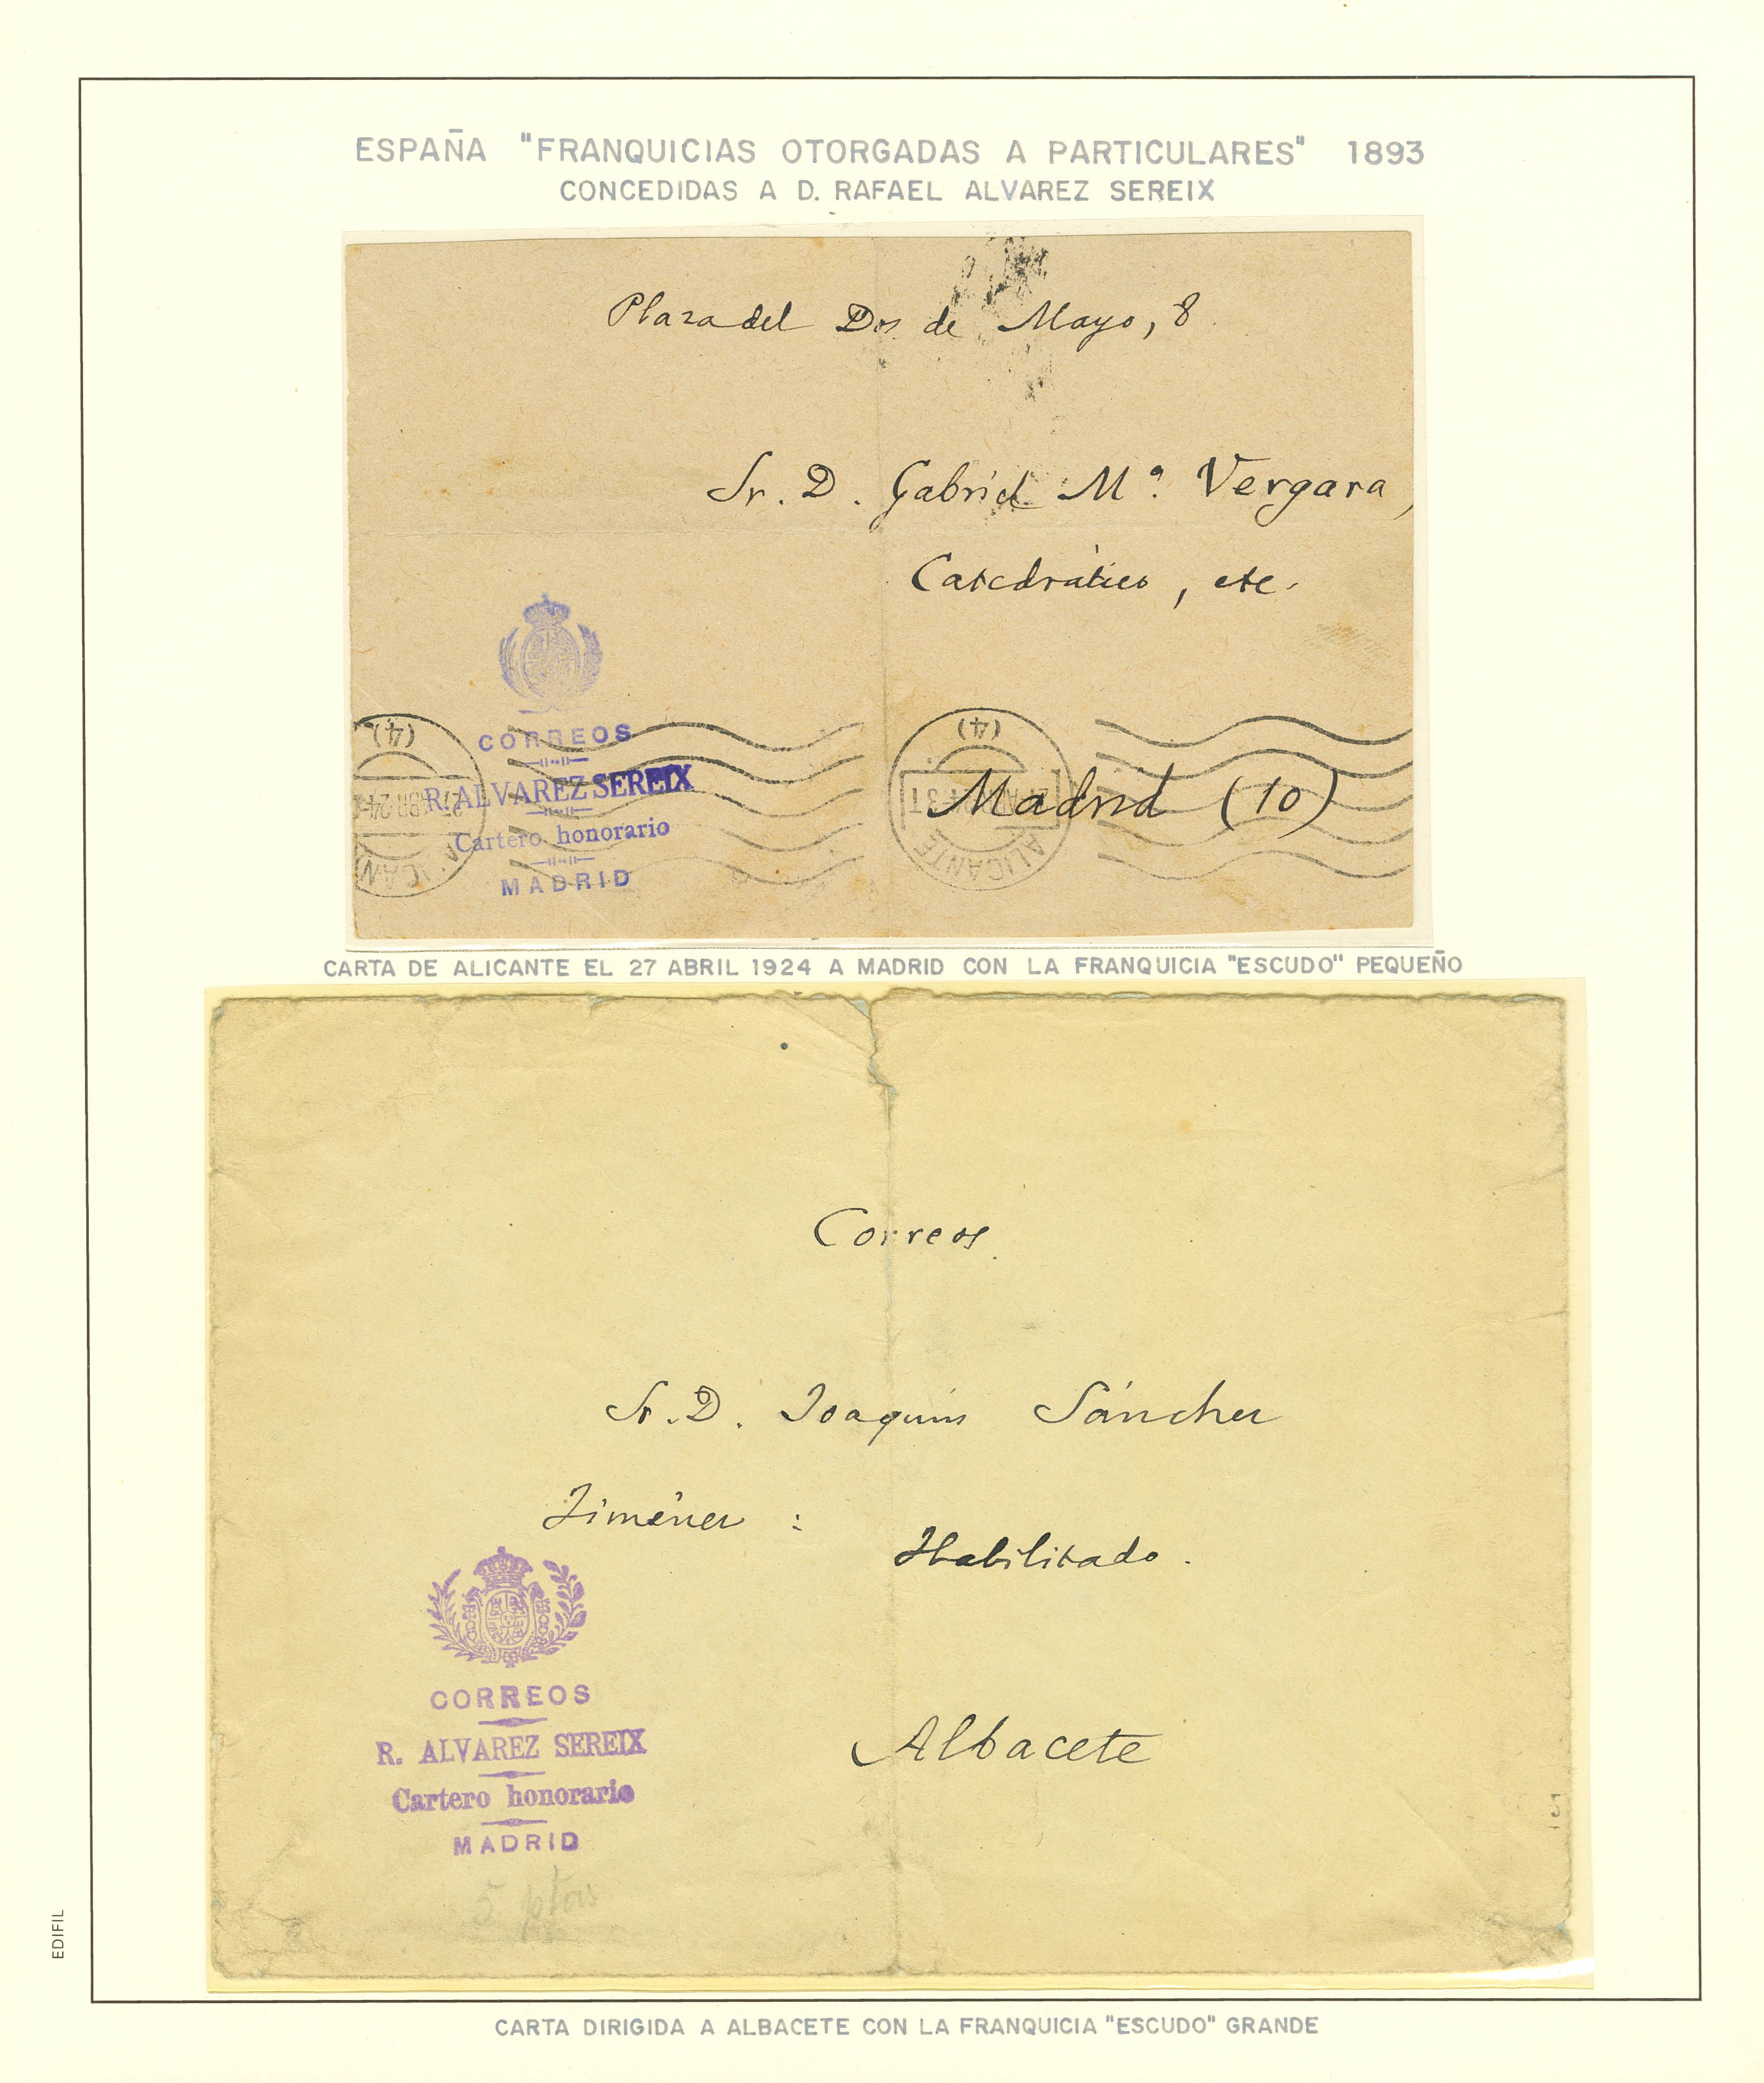 ESPAÑA "FRANQUICIAS OTORGADAS A PARTICULARES" 1893
CONCEDIDAS A D. RAFAEL ALVAREZ SEREIX
Plaza del Dos de Mayo, 8
Sr. D. Gabriel Mª. Vergara,
Catedrático, etc.
CORREOS
R. ALVAREZ SEREIX
Cartero honorario
MADRID
(4)
27 ABR 24
ALICAN
(4)
ALICANTE
Madrid (10)
CARTA DE ALICANTE EL 27 ABRIL 1924 A MADRID CON LA FRANQUICIA "ESCUDO" PEQUEÑO
Correos.
Sr. D. Joaquín Sánchez
Jiménez :
Habilitado.
Albacete
CORREOS
R. ALVAREZ SEREIX
Cartero honorario
MADRID
5 ptas
EDIFIL
CARTA DIRIGIDA A ALBACETE CON LA FRANQUICIA "ESCUDO" GRANDE